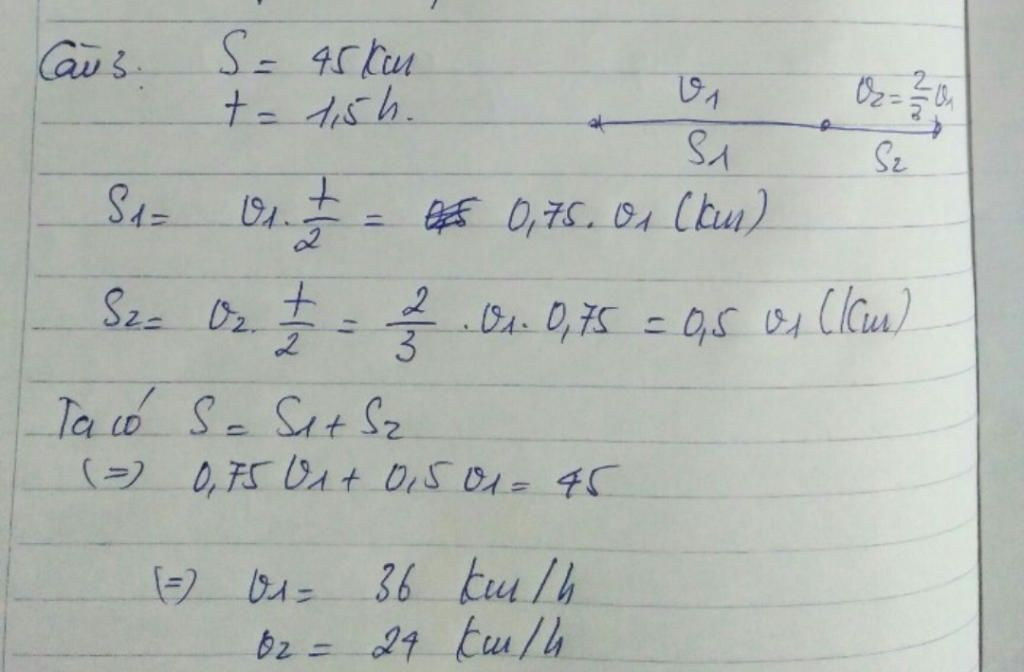 Câu 3. S = 45 Km
t = 1,5 h.
v1 v2 = 2/3 v1
S1 S2
S1 = v1 . t/2 = 0,75 . v1 (Km)
S2 = v2 . t/2 = 2/3 . v1 . 0,75 = 0,5 v1 (Km)
Ta có S = S1 + S2
(=) 0,75 v1 + 0,5 v1 = 45
(=) v1 = 36 Km/h
v2 = 24 Km/h